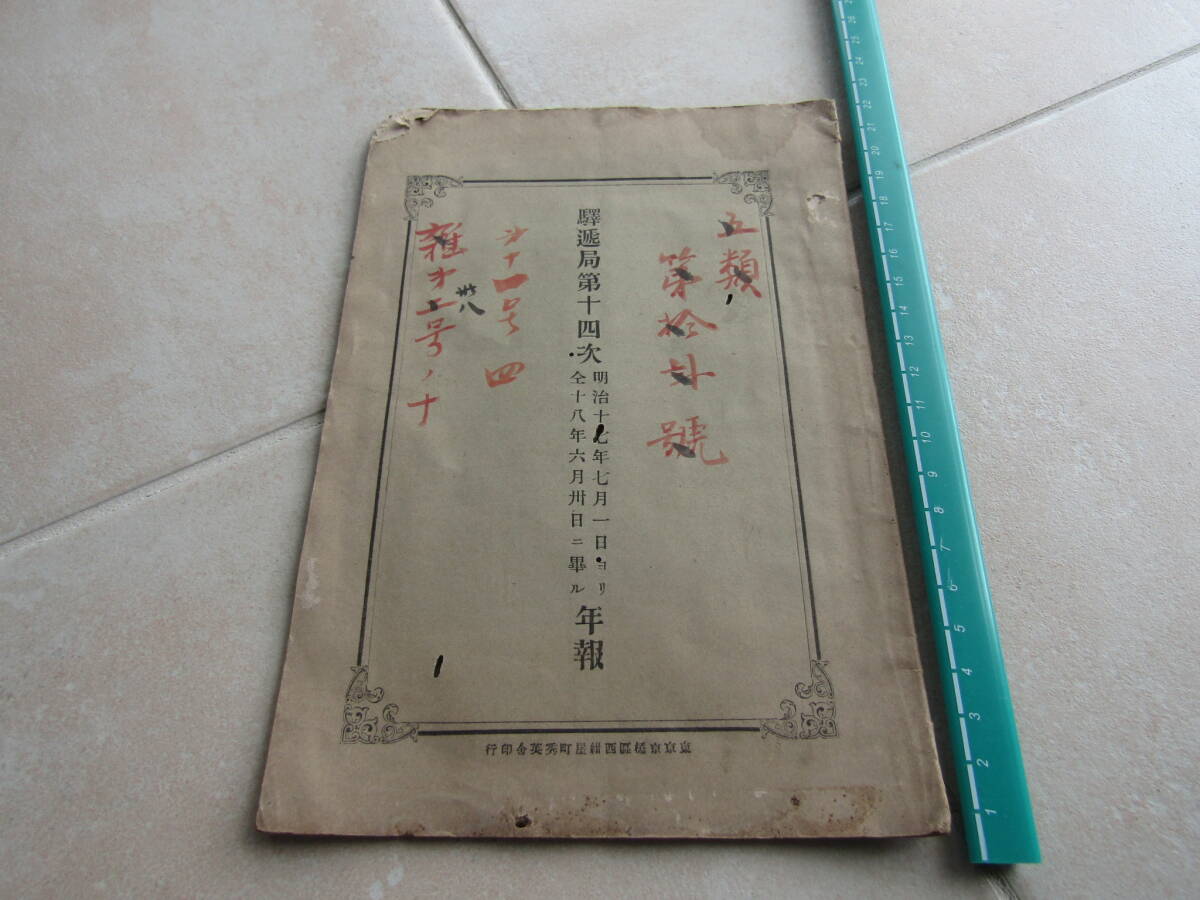 五類
第拾弐號
驛遞局第十四次
明治十七年七月一日ヨリ
仝十八年六月卅日ニ畢ル
年報
才十一号 四
卅八
雜才二号ノ十
東京京橋區西紺屋町秀英舍印行
1 2 3 4 5 6 7 8 9 10 11 12 13 14 15 16 17 18 19 20 21 22 23 24 25 26